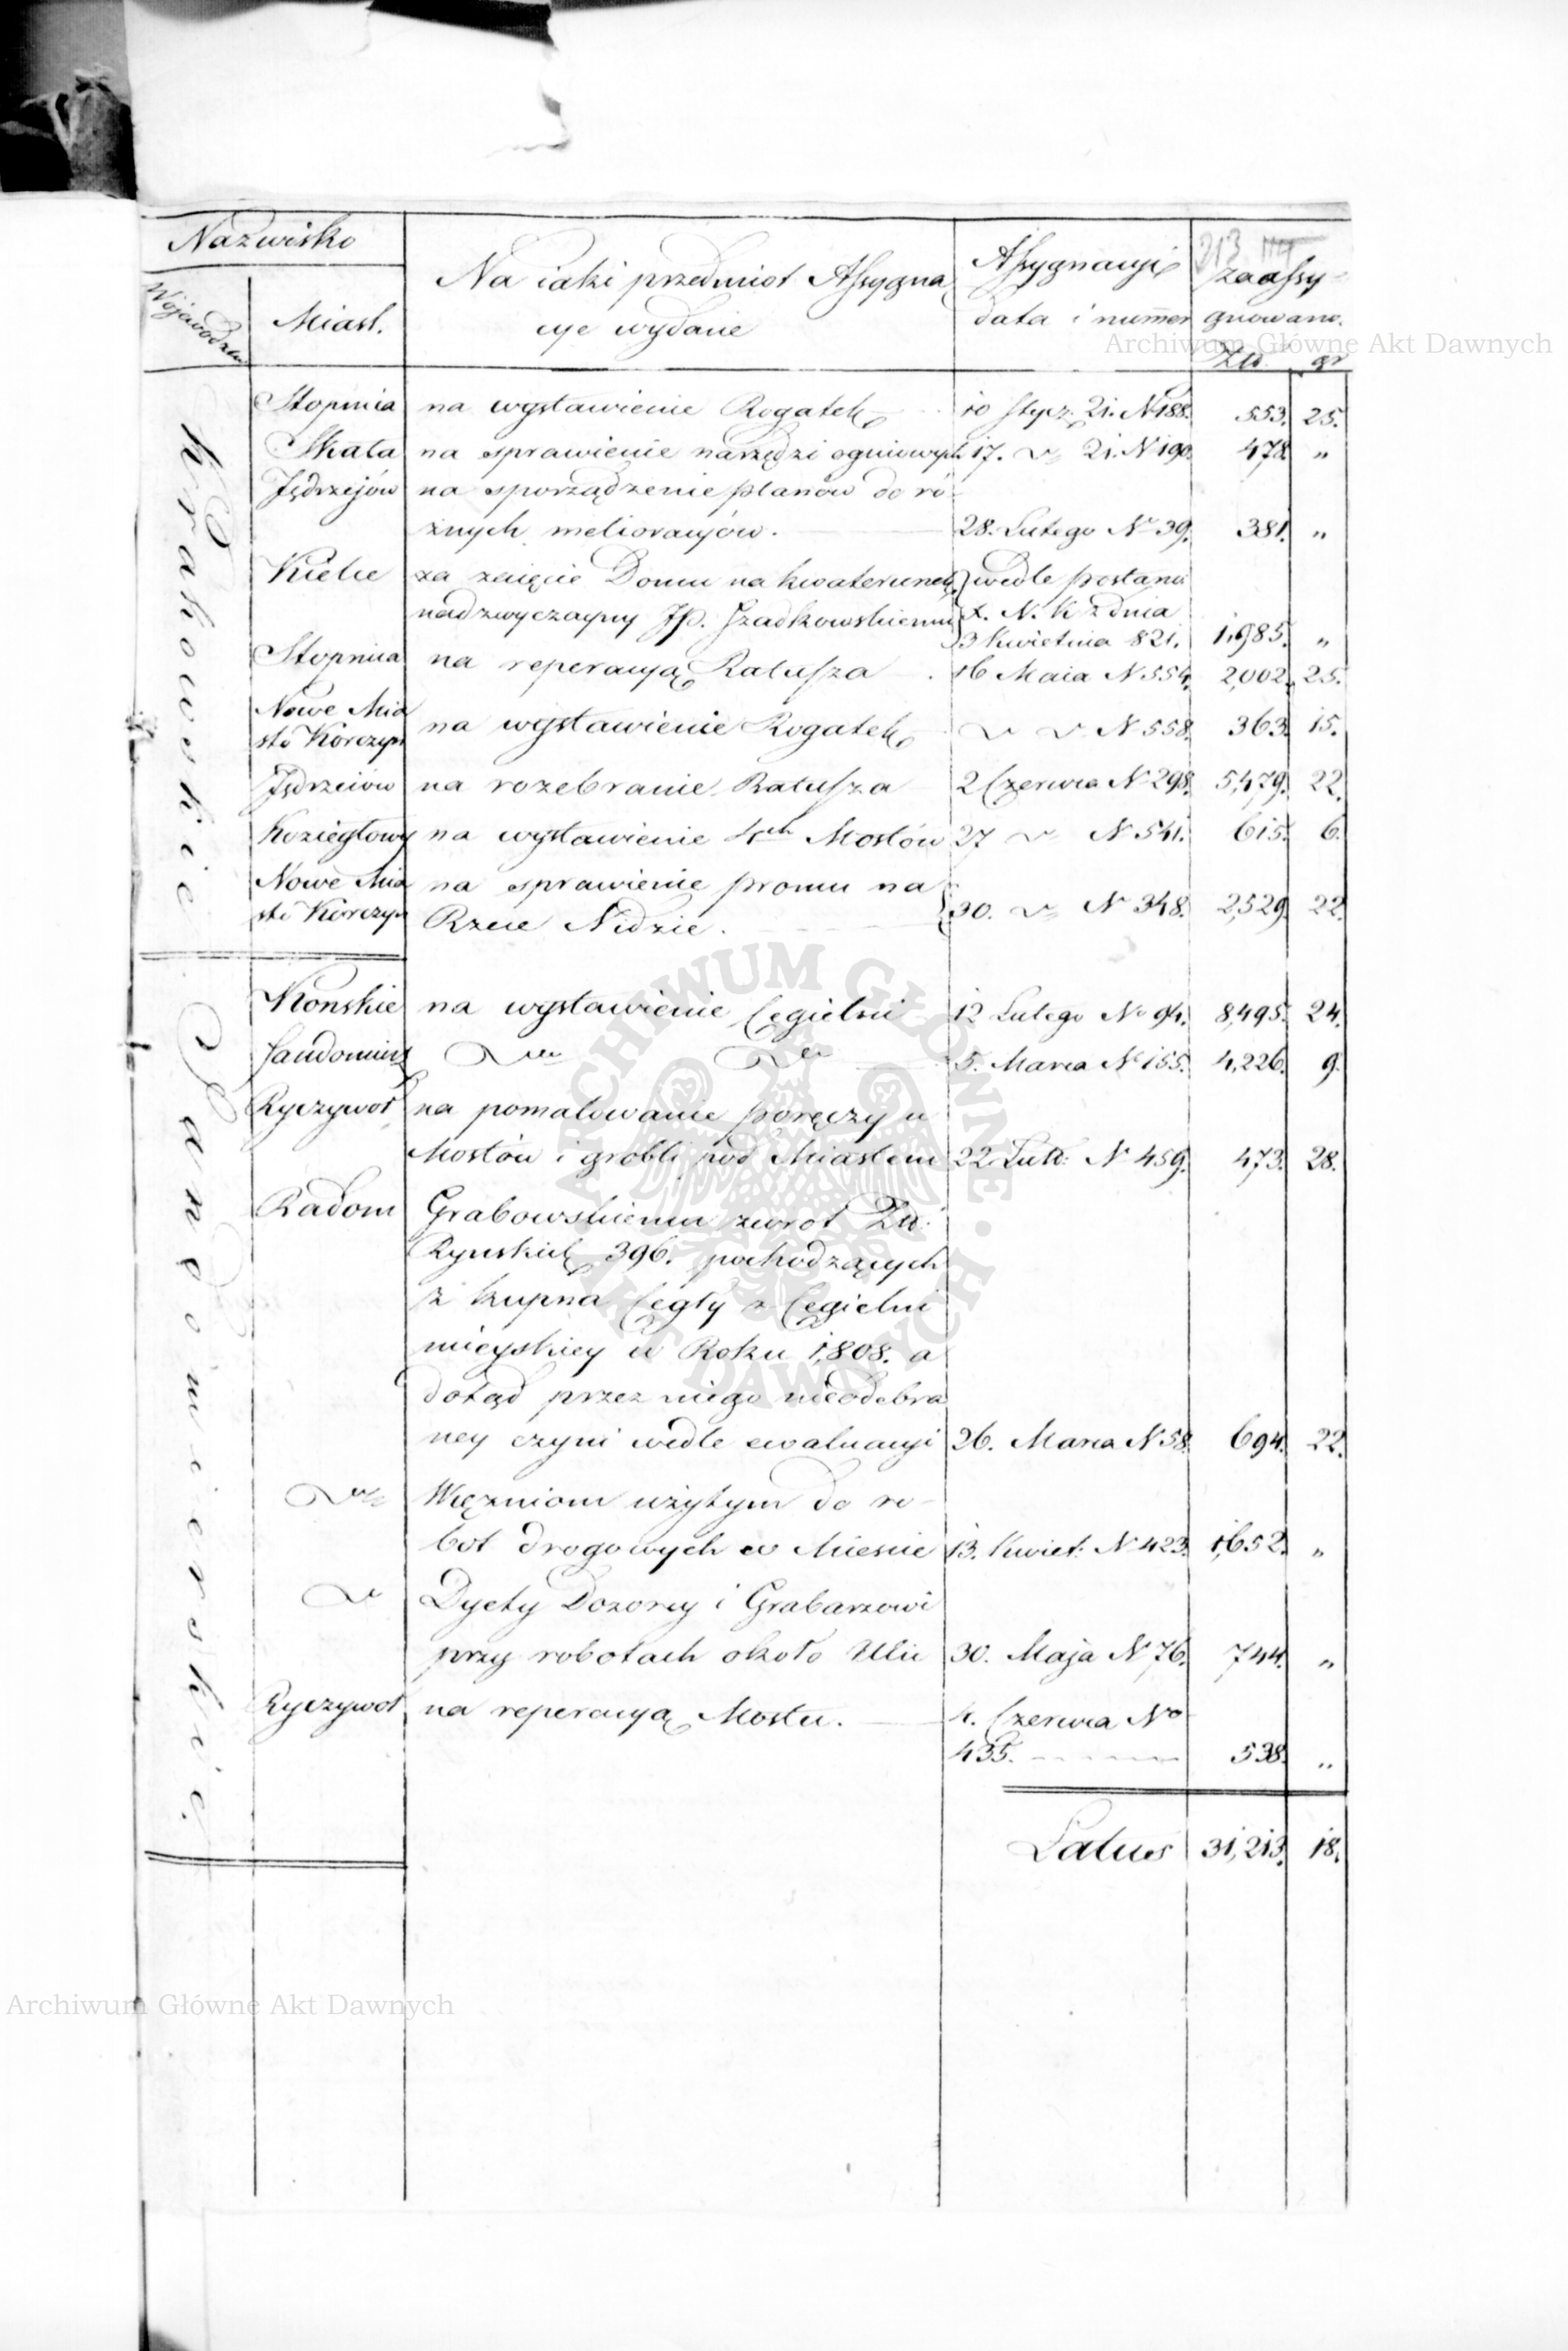 213 114
Nazwisko
Województw
Miast.
Na iaki przedmiot Assygna
cye wydane
Assygnacyi
data i numer
zaassy-
gnowano.
Złł. gr
Krakowskie
Stopnica na wystawienie Rogatek 10 Stycz: 21. N 188. 553. 25.
Skała na sprawienie narzędzi ogniowych 17. 21. N 190. 478. "
Jędrzejów na sporządzenie planów do ró-
żnych melioracyów. 28. Lutego No 39. 381. "
Kielce za zaięcie Domu na kwaterunek wedle postano
nadzwyczayny JP. Szadkowskiemu X. N. K z dnia
3 Kwietnia 821. 1,985. "
Stopnica na reperacyą Ratusza 16 Maia N 554. 2,002. 25.
Nowe Mia
sto Korczyn na wystawienie Rogatek N 558. 363. 15.
Jędrzeiów na rozebranie Ratusza 2 Czerwca N 298. 5,479. 22.
Koziegłowy na wystawienie 4ch Mostów 27 N 541. 615. 6.
Nowe Mia na sprawienie promu na
sto Korczyn Rzece Nidzie. 30. N 348. 2,529. 22.
Sandomierskie.
Konskie na wystawienie Cegielni 12 Lutego No 94. 8,495. 24.
Sandomierz 5. Marca No 155. 4,226. 9.
Ryczywoł na pomalowanie poręczy u
Mostów i grobli pod Miastem 22. Lut: N 459. 473. 28.
Radom Grabowskiemu zwrot Złł:
Rynskich 396. pochodzących
z kupna Cegły z Cegielni
mieyskiey w Roku 1,808. a
dotąd przez niego nieodebra
ney czyni wedle ewaluacyi 26. Marca N 58. 694. 22.
Więzniom użytym do ro-
bot drogowych w Miescie 13. Kwiet: N 423. 1,652. "
Dyety Dozorcy i Grabarzowi
przy robotach około Ulic 30. Maja N 76. 744. "
Ryczywoł na reperacyą Mostu. 4. Czerwca No
435. 538. "
Latus 31,213. 18.
Archiwum Główne Akt Dawnych
ARCHIWUM GŁÓWNE AKT DAWNYCH
Archiwum Główne Akt Dawnych